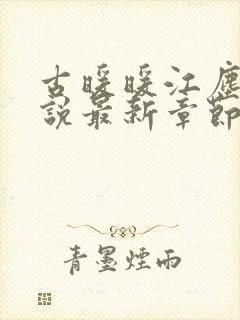 古暖暖江塵
說最新章節
青墨煙雨